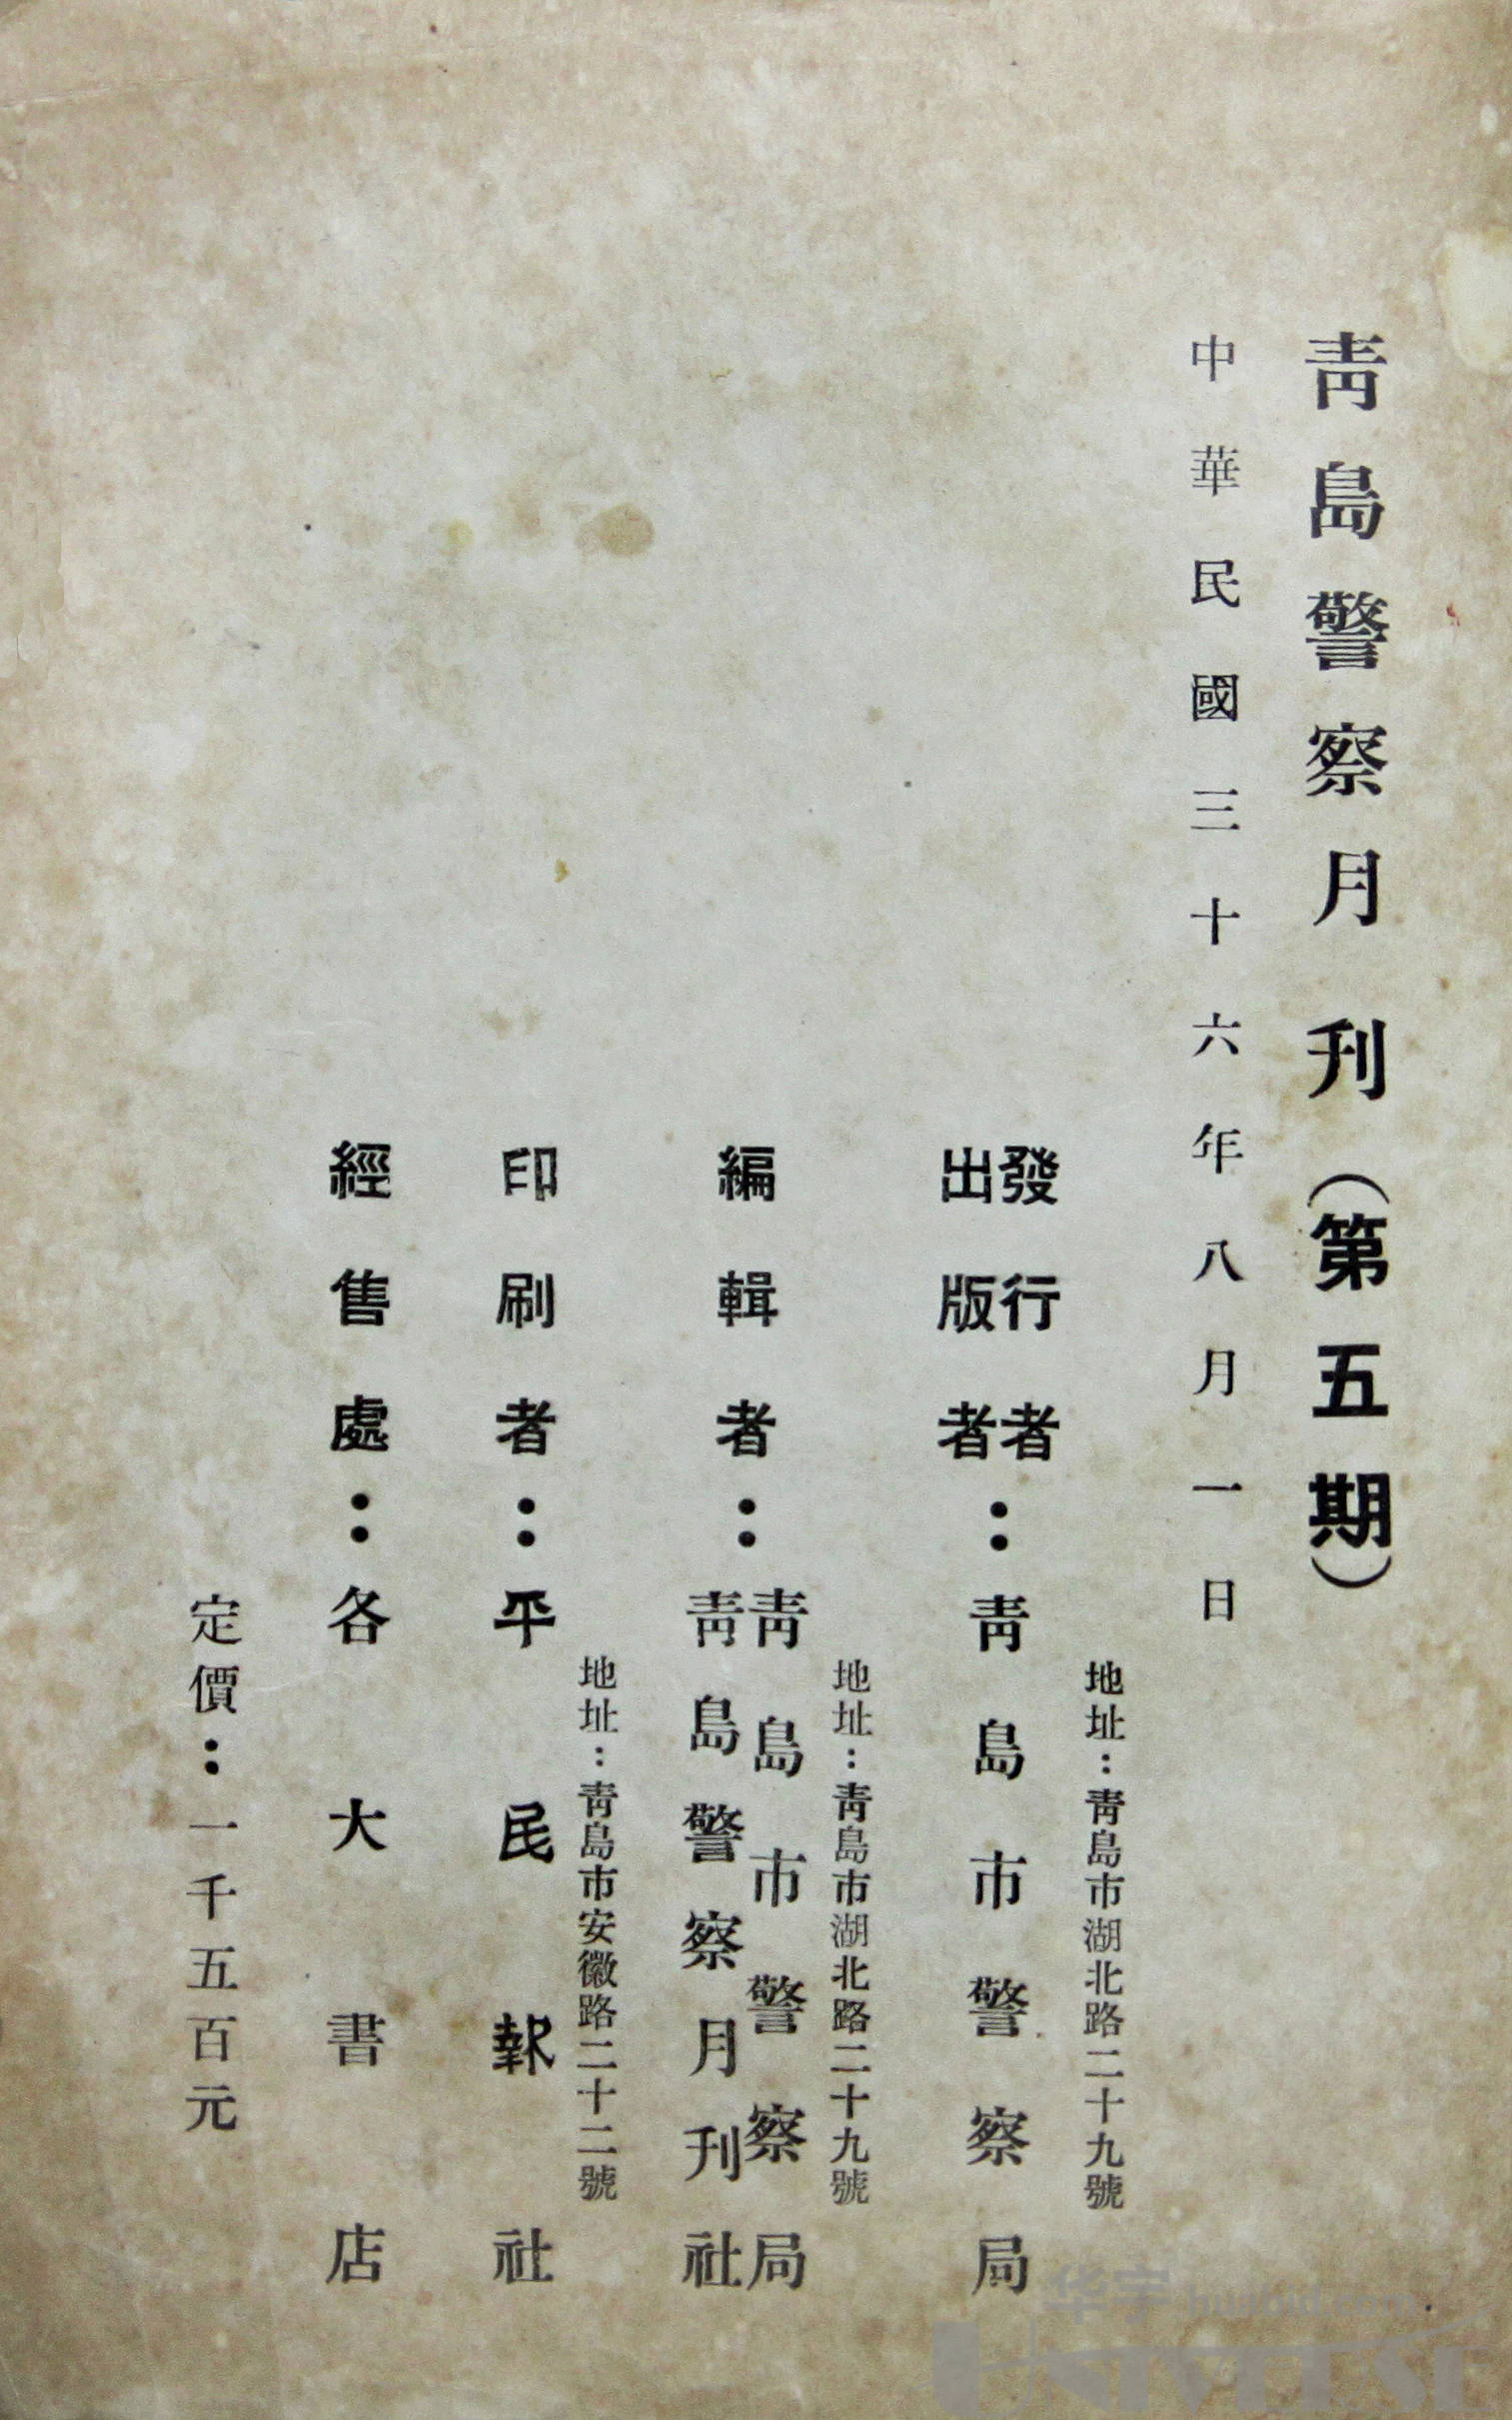 靑島警察月刊（第五期）
中華民國三十六年八月一日
地址：靑島市湖北路二十九號
發行者
出版者：靑島市警察局
地址：靑島市湖北路二十九號
編輯者：靑島市警察局
靑島警察月刊社
地址：靑島市安徽路二十二號
印刷者：平民報社
經售處：各大書店
定價：一千五百元
华宇 huabid.com
UNIVERSE